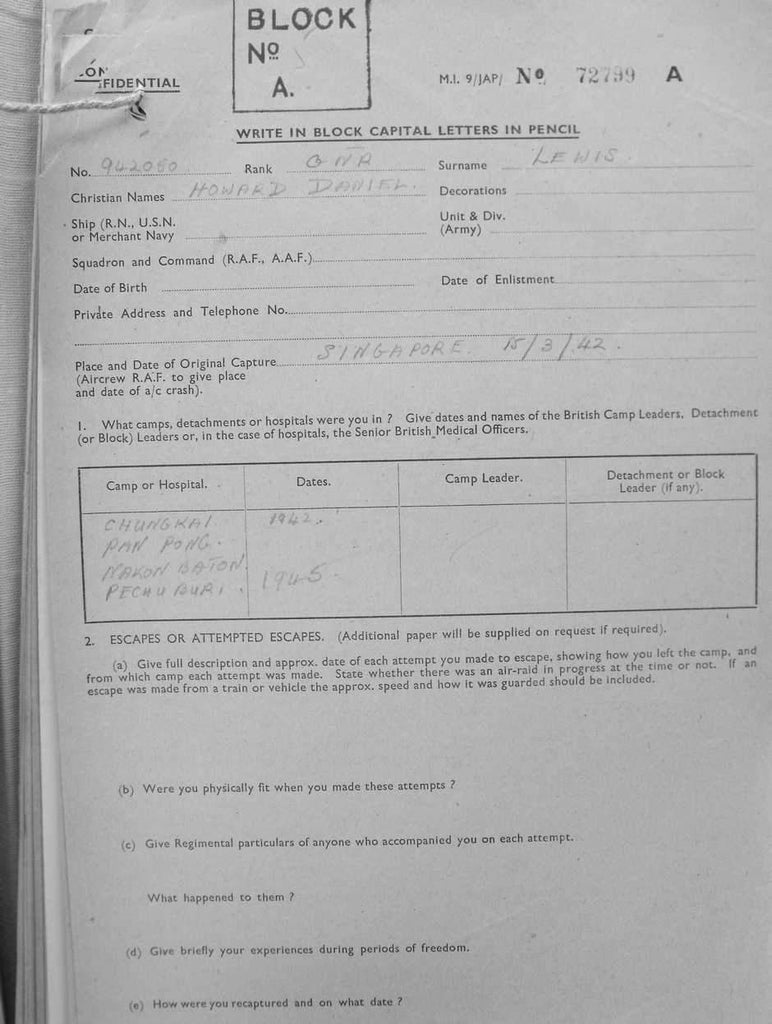 BLOCK
Nº
A.
CONFIDENTIAL
M.I. 9/JAP/ Nº 72799 A
WRITE IN BLOCK CAPITAL LETTERS IN PENCIL
No. 942050 Rank GNR Surname LEWIS.
Christian Names HOWARD DANIEL. Decorations
Ship (R.N., U.S.N. Unit & Div.
or Merchant Navy (Army)
Squadron and Command (R.A.F., A.A.F.)
Date of Birth Date of Enlistment
Private Address and Telephone No.
Place and Date of Original Capture SINGAPORE. 15/3/42.
(Aircrew R.A.F. to give place
and date of a/c crash).
1. What camps, detachments or hospitals were you in ? Give dates and names of the British Camp Leaders, Detachment
(or Block) Leaders or, in the case of hospitals, the Senior British Medical Officers.
Camp or Hospital. Dates. Camp Leader. Detachment or Block
Leader (if any).
CHUNGKAI 1942.
PAN PONG.
NAKON BATON
PECHUBURI. 1945.
2. ESCAPES OR ATTEMPTED ESCAPES. (Additional paper will be supplied on request if required).
(a) Give full description and approx. date of each attempt you made to escape, showing how you left the camp, and
from which camp each attempt was made. State whether there was an air-raid in progress at the time or not. If an
escape was made from a train or vehicle the approx. speed and how it was guarded should be included.
(b) Were you physically fit when you made these attempts ?
(c) Give Regimental particulars of anyone who accompanied you on each attempt.
What happened to them ?
(d) Give briefly your experiences during periods of freedom.
(e) How were you recaptured and on what date ?